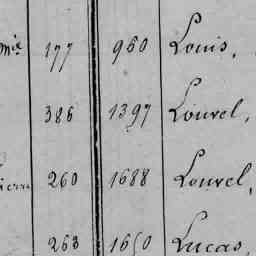 177 960 Louis,
386 1397 Louvel,
260 1688 Louvel,
263 1650 Lucas,